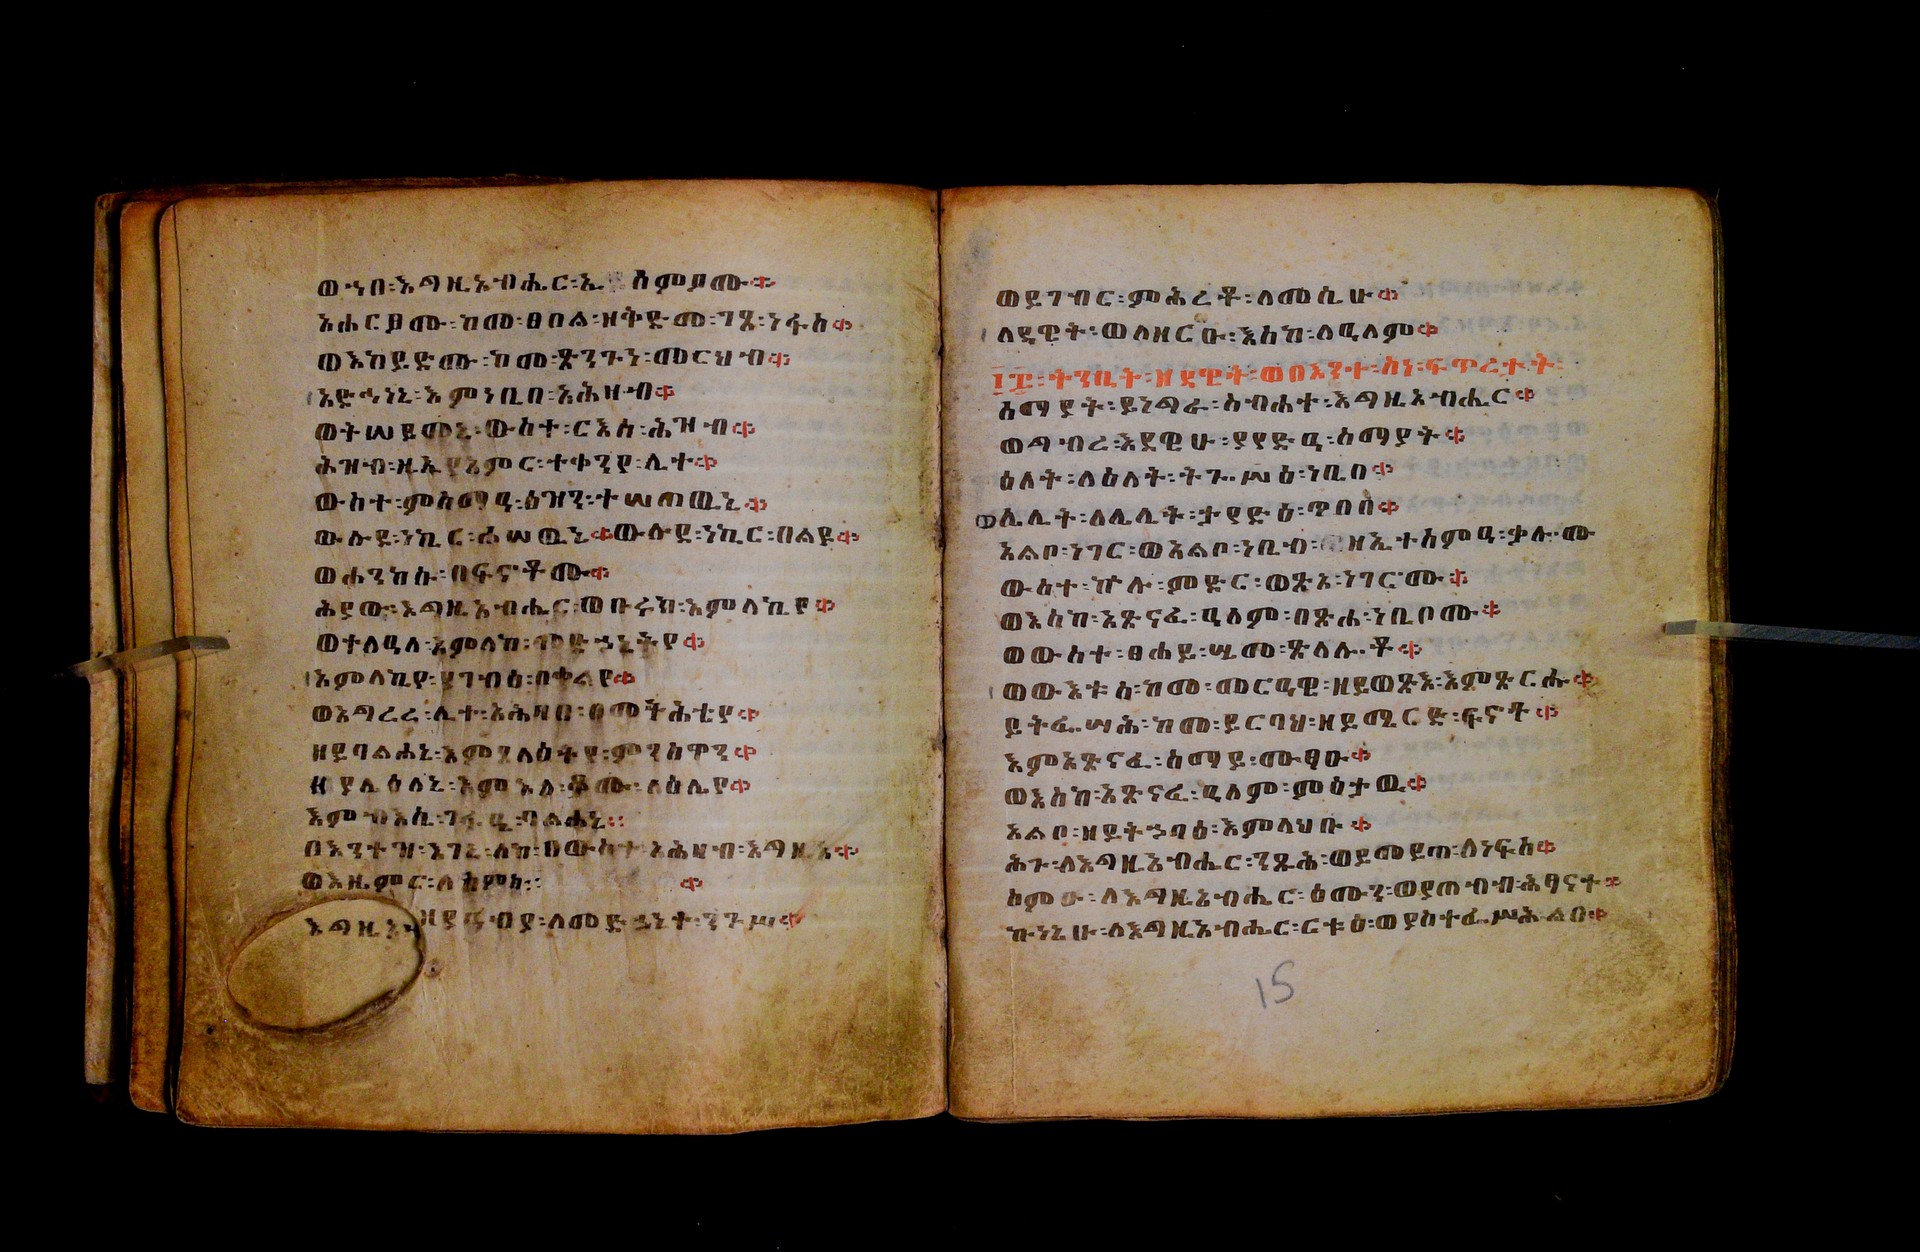 ወኀበ፡እግዚአብሔር፡ኢ ሰምዖሙ፨
አሐርዖሙ፡ከመ፡ፀበል፡ዘቅድመ፡ገጸ፡ነፋስ፨
ወእከይድሙ፡ከመ፡ጽንጉን፡መርህብ፨
አድኅነኒ፡እምነቢበ፡አሕዛብ፨
ወትሠይመኒ፡ውስተ፡ርእሰ፡ሕዝብ፨
ሕዝብ፡ዚኢያአምር፡ተቀንየ፡ሊተ፨
ውስተ፡ምስማዓ፡ዕዝን፡ተሠጠዉኒ፨
ውሉደ፡ነኪር፡ሐሠዉኒ፨ውሉደ፡ነኪር፡በልዩ፨
ወሐንከሱ፡በፍኖቶሙ፨
ሕያው፡እግዚአብሔር፡ወቡሩክ፡አምላኪየ፨
ወተለዓለ፡አምላከ፡መድኃኒትየ፨
አምላኪየ፡ያገብዕ፡በቀልየ፨
ወአግረረ፡ሊተ፡አሕዛበ፡ፀመትሕቲየ፨
ዘይባልሐኒ፡እምጸላዕትየ፡ምንስዋን፨
ዘያሌዕለኒ፡እምእለ፡ቆሙ፡ላዕሌየ፨
እምብእሲ፡ገፋዒ፡ባልሐኒ፡፡
በእንተዝ፡እገኒ፡ለከ፡በውስተ፡አሕዛብ፡እግዚአ፨
ወእዜምር፡ለስምከ፡፡ ፨
እግዚአ ዘያዓብያ፡ለመድኃኒተ፡ንጉሥ፨
ወይገብር፡ምሕረቶ፡ለመሲሁ፨
ለዳዊት፡ወለዘርዑ፡እስከ፡ለዓለም፨
፲፰፡ትንቢት፡ዘዳዊት፡ወበእንተ፡ስነ፡ፍጥረታት፡
ሰማያት፡ይነግራ፡ስብሐተ፡እግዚአብሔር፨
ወግብረ፡እደዊሁ፡ያየድዓ፡ሰማያት፨
ዕለት፡ለዕለት፡ትጉሥዕ፡ነቢበ፨
ወሌሊት፡ለሌሊት፡ታየድዕ፡ጥበበ፨
አልቦ፡ነገር፡ወአልቦ፡ነቢብ፡ ዘኢተሰምዓ፡ቃሎሙ
ውስተ፡ኵሉ፡ምድር፡ወጽአ፡ነገርሙ፨
ወእስከ፡አጽናፈ፡ዓለም፡በጽሐ፡ነቢቦሙ፨
ወውስተ፡ፀሐይ፡ሤመ፡ጽላሎቶ፨
ወውእቱሰ፡ከመ፡መርዓዊ፡ዘይወጽእ፡እምጽርሑ፨
ይትፌሣሕ፡ከመ፡ይርባህ፡ዘይሚርድ፡ፍኖቶ፨
እምአጽናፈ፡ሰማይ፡ሙፃኡ፨
ወእስከ፡አጽናፈ፡ዓለም፡ምዕታዉ፨
አልቦ፡ዘይትኃባዕ፡እምላህቡ፨
ሕጉ፡ለእግዚአብሔር፡ንጹሕ፡ወይመይጠ፡ለነፍስ፨
ስምዑ፡ለእግዚአብሔር፡ዕሙን፡ወያጠብብ፡ሕፃናተ፨
ኵነኒሁ፡ለእግዚአብሔር፡ርቱዕ፡ወያስተፌሥሕ፡ልበ፨
15